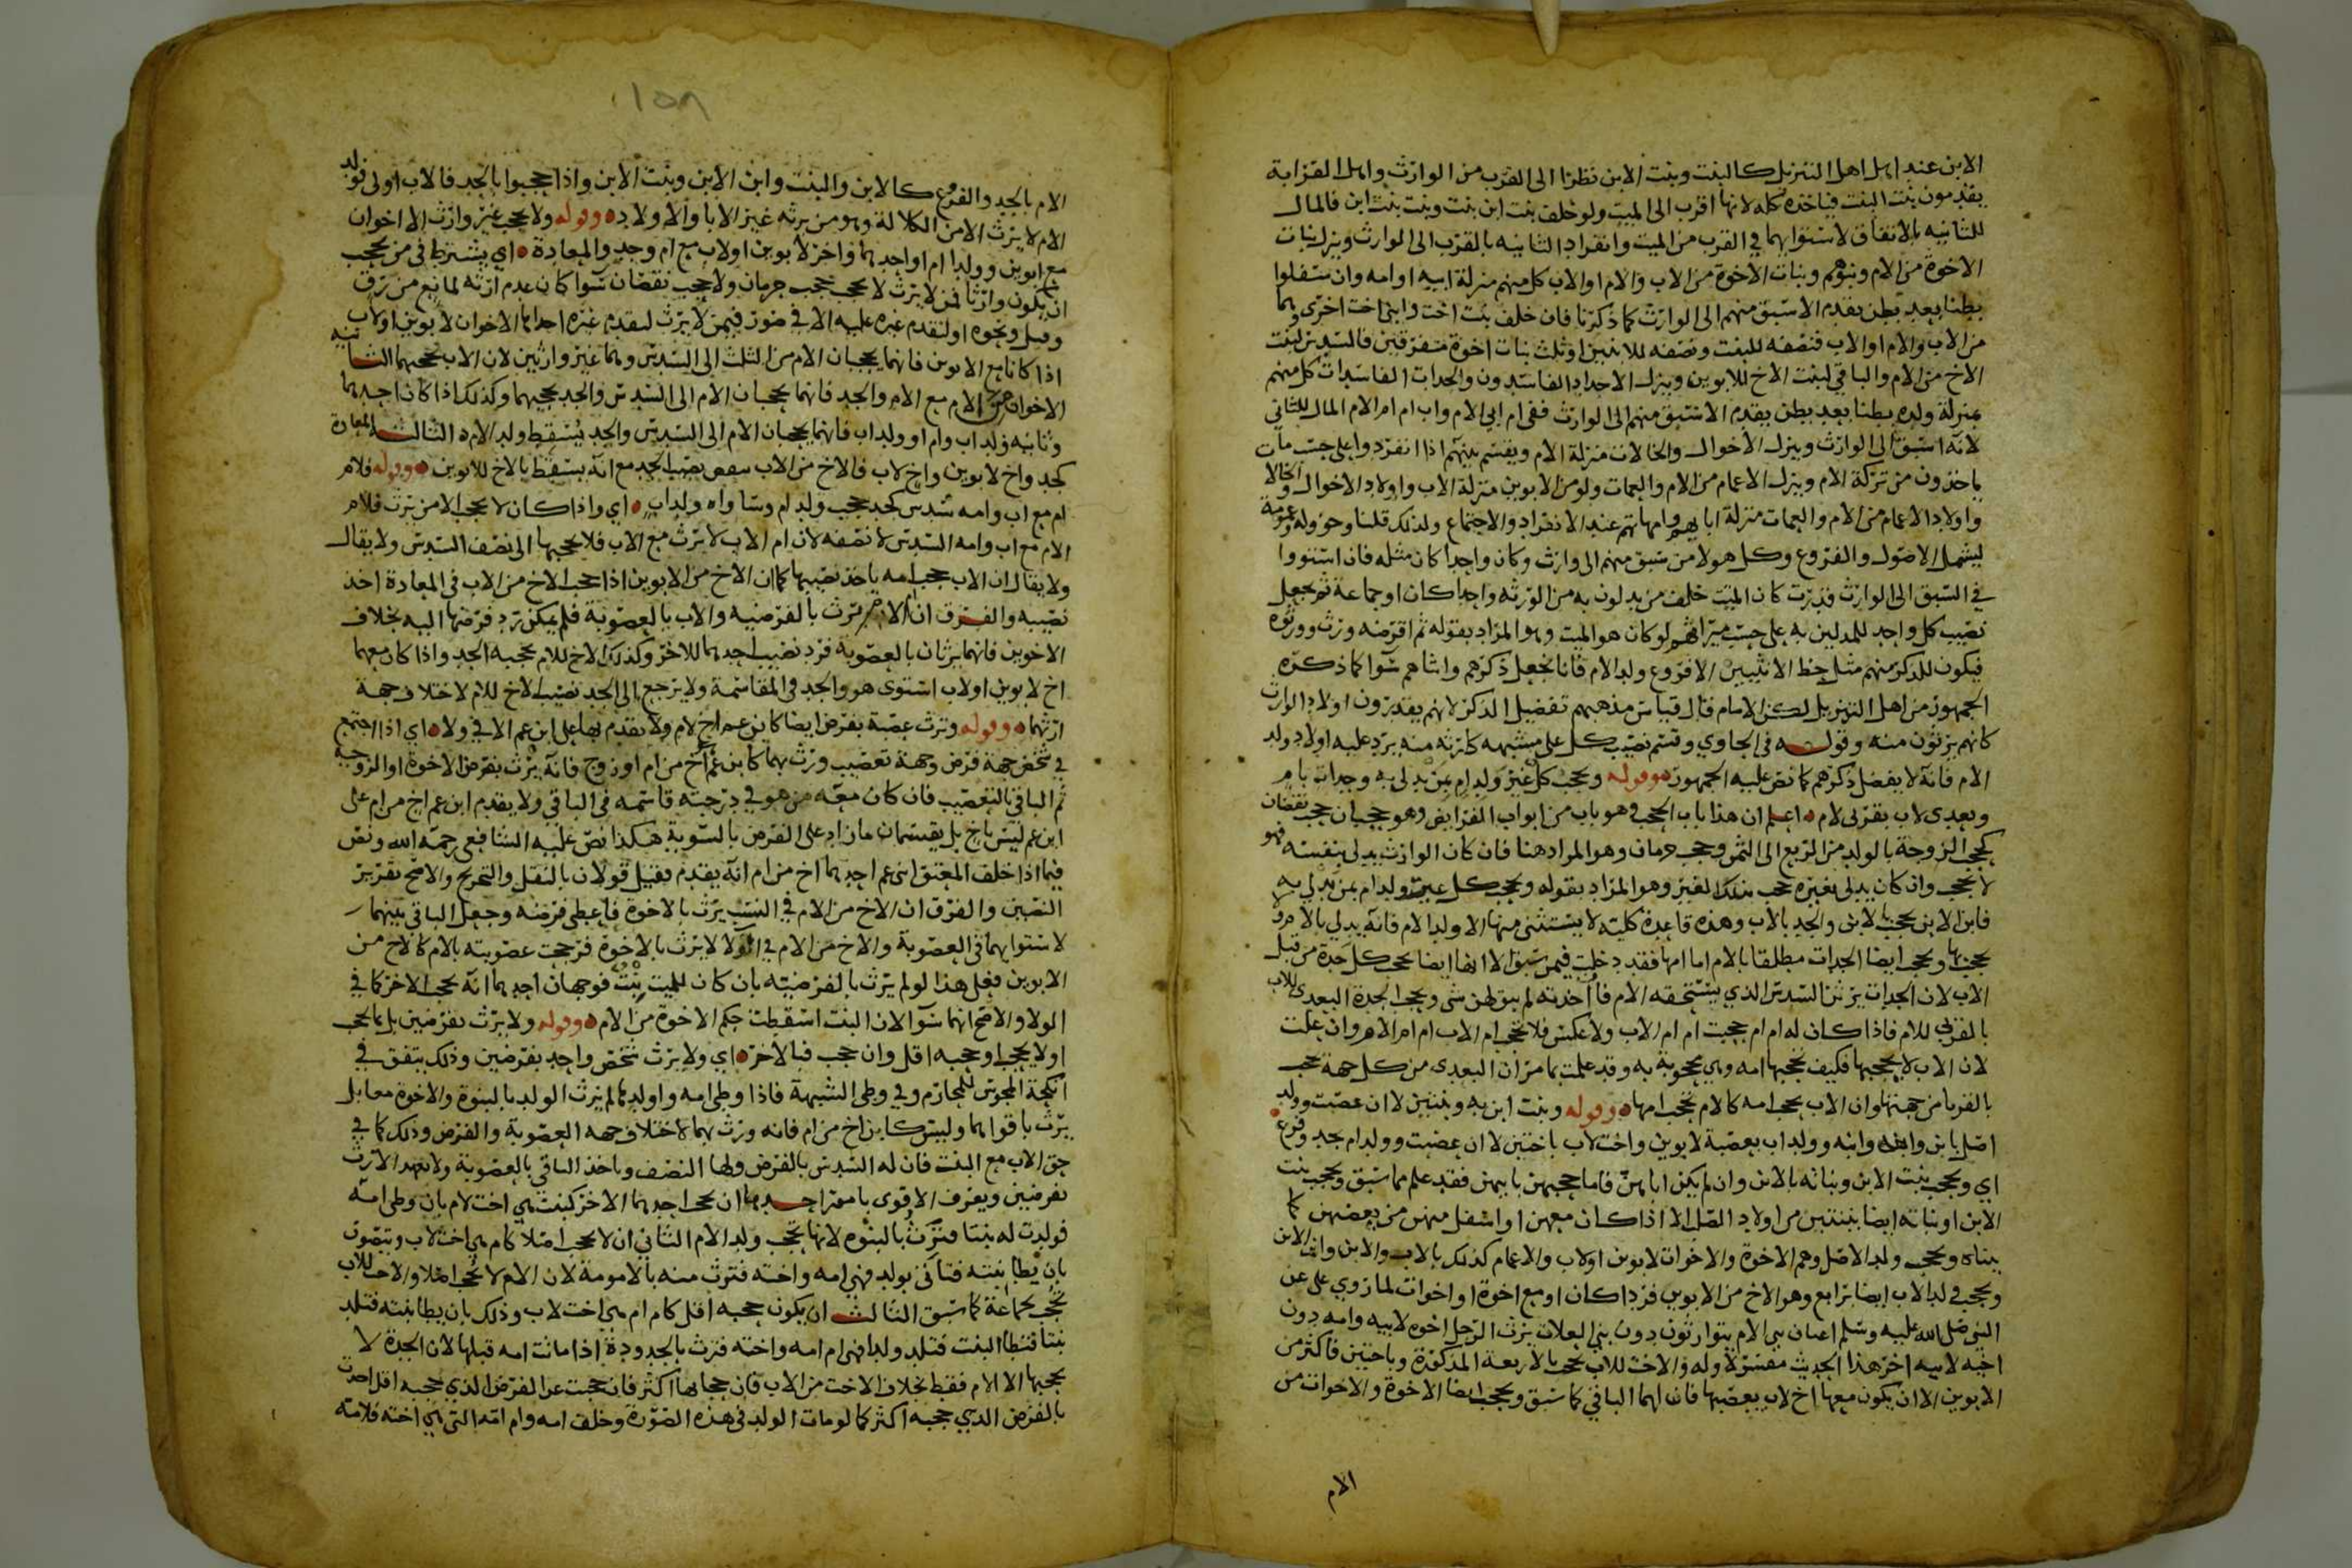 الابن عند اهل اهل التنزيل كالبنت وبنت الابن نظرا الى القرب من الوارث واهل القرابة
يقدمون بنت البنت فياخذه كله لانها اقرب الى الميت ولو خلف بنت ابن بنت وبنت بنت ابن فالمال
للثانيه بالاتفاق لاستوايهما في القرب من الميت وانفراد الثانيه بالقرب الى الوارث وينزل بنات
الاخوة من الام وبنوهم وبنات الاخوة من الاب والام او الاب كل منهم منزلة ابيه او امه وان سفلوا
بطنا بعد بطن يقدم الاسبق منهم الى الوارث كما ذكرنا فان خلف بنت اخت وابنى اخت اخرى وهما
من الاب والام او الاب فنصفه للبنت ونصفه للابنين او ثلث بنات اخوة متفرقين فالسدس لبنت
الاخ من الام والباقي لبنت الاخ للابوين وينزل الاجداد الفاسدون والجدات الفاسدات كل منهم
بمنزلة ولده بطنا بعد بطن يقدم الاسبق منهم الى الوارث ففي ام ابي الام واب ام ام الام المال للثاني
لانه اسبق الى الوارث وينزل الاخوال والخالات منزلة الام ويقسم بينهم اذا انفردوا على حسب مات
ياخذون من تركة الام وينزل الاعمام من الام والعمات ولو من الابوين منزلة الاب واولاد الاخوال والخالا
واولاد الاعمام من الام والعمات منزلة ابايهم وامهاتهم عند الانفراد والاجتماع ولذلك قلنا وحؤوله وعمومة
ليشمل الاصول والفروع وكل هولا من سبق منهم الى وارث وكان واحدا كان مثله فان استووا
في السبق الى الوارث قدرت كان الميت خلف من يدلون به من الورثه واحدا كان او جماعة ثم يجعل
نصيب كل واحد للمدلين به على حسب ميراثهم لو كان هو الميت وهو المراد بقوله ثم اقرضه ورث وورثوه
فيكون للذكر منهم مثل حظ الانثيين الا فروع ولد الام فانا نجعل ذكرهم وانثاهم سوا كما ذكره
الجمهور من اهل التنزيل لكن الامام قال قياس مذهبهم تفضيل الذكر لانهم يقدرون اولاد الوارث
كانهم يرثون منه وقوله في الحاوي وقسم نصيب كل على مشبهه كارثه منه يرد عليه اولاد ولد
الام فانه لا يفضل ذكرهم كما نص عليه الجمهور وقوله ويحجب كل غير ولد ام بمن يدلى به وجدات بام
وبعدى لاب بقربى لام اعلم ان هذا باب الحجب وهو باب من ابواب الفرايض وهو حجبان حجب نقصان
كحجب الزوجة بالولد من الربع الى الثمن وحجب حرمان وهو المراد هنا فان كان الوارث يدلى بنفسه فهو
لا يحجب وان كان يدلى بغيره حجب بذلك الغير وهو المراد بقوله ويحجب كل غير ولد ام بمن يدلى به
فابن الابن يحجب بالابن والجد بالاب وهذه قاعدة كلية لا يستثنى منها الا ولد الام فانه يدلي بالام ولا
يحجب بها ويحجب ايضا الجدات مطلقا بالام اما امها فقد دخلت فيمن سبق الا انها ايضا تحجب كل جدة من قبل
الاب لان الجدات يرثن السدس الذي يستحقه الام فاذا اخذته لم يبق لهن شى ويحجب الجدة البعدى للاب
بالقربى للام فاذا كان له ام ام حجبت ام ام الاب ولا عكس فلا تحجب ام الاب ام ام الام وان علت
لان الاب لا يحجبها فكيف تحجبها امه وهي محجوبة به وقد علمت بما مر ان البعدى من كل جهة تحجب
بالقربا من جهتها وان الاب يحجب امه كالام تحجب امها وقوله وبنت ابن به وبنتين لا ان عصبت وولد
اصل بابن وابنه وابنه وولد اب بعصبة لابوين واخت لاب باختين لا ان عصبت وولد ام بجد وفرع
اي ويحجب بنت الابن وبناته بالابن وان لم يكن اباهن فاما حجبهن بابيهن فقد علم مما سبق ويحجب بنت
الابن او بناته ايضا ببنتين من اولاد الصلب الا اذا كان معهن او اسفل منهن من يعصبهن كما
بيناه ويحجب ولد الاصل وهم الاخوة والاخوات لابوين اولاب والاعمام كذلك بالاب والابن وابن الابن
ويحجب ولد الاب ايضا برابع وهو الاخ من الابوين فردا كان او مع اخوة او اخوات لما روي على عن
النبي صلى الله عليه وسلم اعيان بني الام يتوارثون دون بني العلات يرث الرجل اخوه لابيه وامه دون
اخيه لابيه اخر هذا الحديث مفسر لاوله والاخت للاب تحجب بالاربعة المذكورة وباختين فاكثر من
الابوين الا ان يكون معها اخ لاب يعصبها فان لهما الباقي كما سبق ويحجب ايضا الاخوة والاخوات من
الام
١٥٨
الام بالجد والفروع كالابن والبنت وابن الابن وبنت الابن واذا حجبوا بالجد فالاب اولى فولد
الام لا يرث الا من الكلالة وهو من يرثه غير الابا والاولاد وقوله ولا يحجب غير وارث الا اخوان
مع ابوين وولدا ام او احدهما واخر لابوين اولاب مع ام وجد والمعادة اي يشترط في من يحجب
ان يكون وارثا فمن لا يرث لا يحجب حجب حرمان ولا حجب نقصان سوا كان عدم ارثه لمانع من رق
وقتل ونحوه او لتقدم غيره عليه الا في صور فيمن لا يرث لتقدم غيره احداها الاخوان لابوين اولاب
اذا كانا مع الابوين فانهما يحجبان الام من الثلث الى السدس وهما غير وارثين لان الاب يحجبهما الثانيه
الاخوان من الام مع الام والجد فانهما يحجبان الام الى السدس والجد يحجبهما وكذلك اذا كان احدهما
وثانيه ولد اب وام او ولد اب فانهما يحجبان الام الى السدس والجد يسقط ولد الام الثالث المعادة
كجد واخ لابوين واخ لاب فالاخ من الاب ينقص نصيب الجد مع انه يسقط بالاخ للابوين وقوله فلام
ام مع اب وامه سدس كجد يحجب ولد ام وساواه ولد اب اي واذا كان لا يحجب الا من يرث فلام
الام مع اب وامه السدس لا نصفه لان ام الاب لا ترث مع الاب فلا يحجبها الى نصف السدس ولا يقال
ولا يقال ان الاب يحجب امه ياخذ نصيبها كما ان الاخ من الابوين اذا حجب الاخ من الاب في المعادة اخذ
نصيبه والفرق ان الام ترث بالفرضيه والاب بالعصوبة فلم يمكن رد فرضها اليه بخلاف
الاخوين فانهما يرثان بالعصوبة فرد نصيب احدهما للاخر وكذلك الاخ للام يحجبه الجد واذا كان معهما
اخ لابوين اولاب استوى هو والجد في المقاسمة ولا يرجع الى الجد نصيب الاخ للام لاختلاف جهة
ارثهما وقوله وترث عصبة بفرض ايضا كابن عم اخ لام ولا يقدم بها على ابن عم الا في ولا اي اذا اجتمع
في شخص جهة فرض وجهة تعصيب ورث بهما كابن عم اخ من ام او زوج فانه يرث بفرض الاخوة او الزوجيه
ثم الباقي بالتعصيب فان كان معه من هو في درجته قاسمه في الباقي ولا يقدم ابن عم اخ من ام على
ابن عم ليس باخ بل يقتسمان ما زاد على الفرض بالسوية هكذا نص عليه الشافعي رحمه الله ونص
فيما اذا خلف المعتق ابنى عم احدهما اخ من ام انه يقدم فقيل قولان بالنقل والتخريج والاصح تقرير
النصين والفرق ان الاخ من الام في النسب يرث بالاخوة فاعطى فرضه وجعل الباقي بينهما
لاستوايهما في العصوبة والاخ من الام في الولا لا يرث بالاخوة فرجحت عصوبته بالام كالاخ من
الابوين فعلى هذا لو لم يرث بالفرضيته بان كان للميت بنت فوجهان احدهما انه يحجب الاخر كما في
الولا والاصح انهما سوا لان البنت اسقطت حكم الاخوة من الام وقوله ولا يرث بفرضين بل بما يحجب
اولا يحجب او حجبه اقل وان حجب فبالاخر اي ولا يرث شخص واحد بفرضين وذلك يتفق في
انكحة المجوس للمحارم وفي وطى الشبهة فاذا وطى امه واولدها لم يرث الولد بالبنوة والاخوة معا بل
يرث باقواهما وليس كابن اخ من ام فانه ورث بهما لاختلاف جهة العصوبة والفرض وذلك كما في
حق الاب مع البنت فان له السدس بالفرض ولها النصف وياخذ الباقي بالعصوبة ولا يعهد الارث
بفرضين ويعرف الاقوى بامور احدها ان يحجب احدهما الاخر كبنت هي اخت لام بان وطى امه
فولدت له بنتا فترث بالبنوه لانها تحجب ولد الام الثاني ان لا يحجب اصلا كام هي اخت لاب ويتصور
بان يطا بنته فتاتى بولد فهي امه واخته فترث منه بالامومة لان الام لا تحجب اصلا والاخت للاب
تحجب بجماعة كما سبق الثالث ان يكون حجبه اقل كام ام هي اخت لاب وذلك بان يطا بنته فتلد
بنتا فيطا البنت فتلد ولدا فهي ام امه واخته فترث بالجدودة اذا ماتت امه قبلها لان الجدة لا
يحجبها الا الام فقط بخلاف الاخت من الاب فان حجابها اكثر فان حجبت عن الفرض الذي حجبه اقل اخذت
بالفرض الذي حجبه اكثر كما لو مات الولد في هذه الصورة وخلف امه وام امه التي هي اخته فلامه